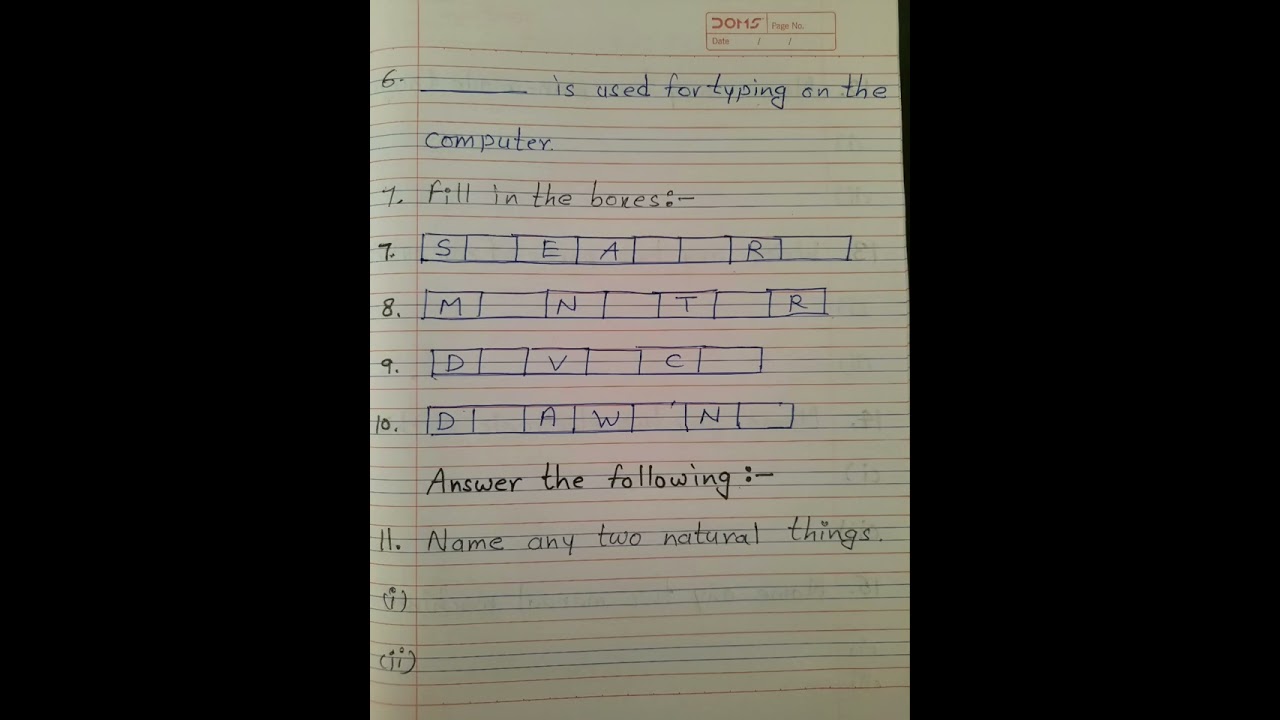 DOMS Page No.
Date / /
6. ______ is used for typing on the
computer.
7. Fill in the boxes:-
7. S E A R
8. M N T R
9. D V C
10. D A W N
Answer the following :-
11. Name any two natural things.
(i)
(ii)